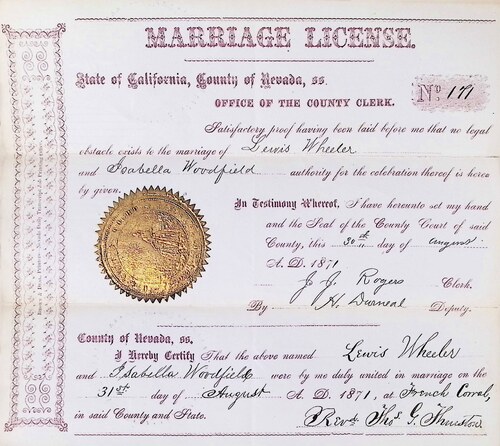 MARRIAGE LICENSE.
State of California, County of Nevada, ss.
OFFICE OF THE COUNTY CLERK.
No 171
Satisfactory proof having been laid before me that no legal
obstacle exists to the marriage of Lewis Wheeler
and Isabella Woodfield authority for the celebration thereof is hereby
by given.
In Testimony Whereof, I have hereunto set my hand
and the Seal of the County Court of said
County, this 30th day of August
A. D. 1871
J. J. Rogers Clerk.
By H. Darneal Deputy.
County of Nevada, ss.
I Hereby Certify That the above named Lewis Wheeler
and Isabella Woodfield were by me duly united in marriage on the
31st day of August A. D. 1871, at French Corral,
in said County and State. Revd Thos G. Thurston